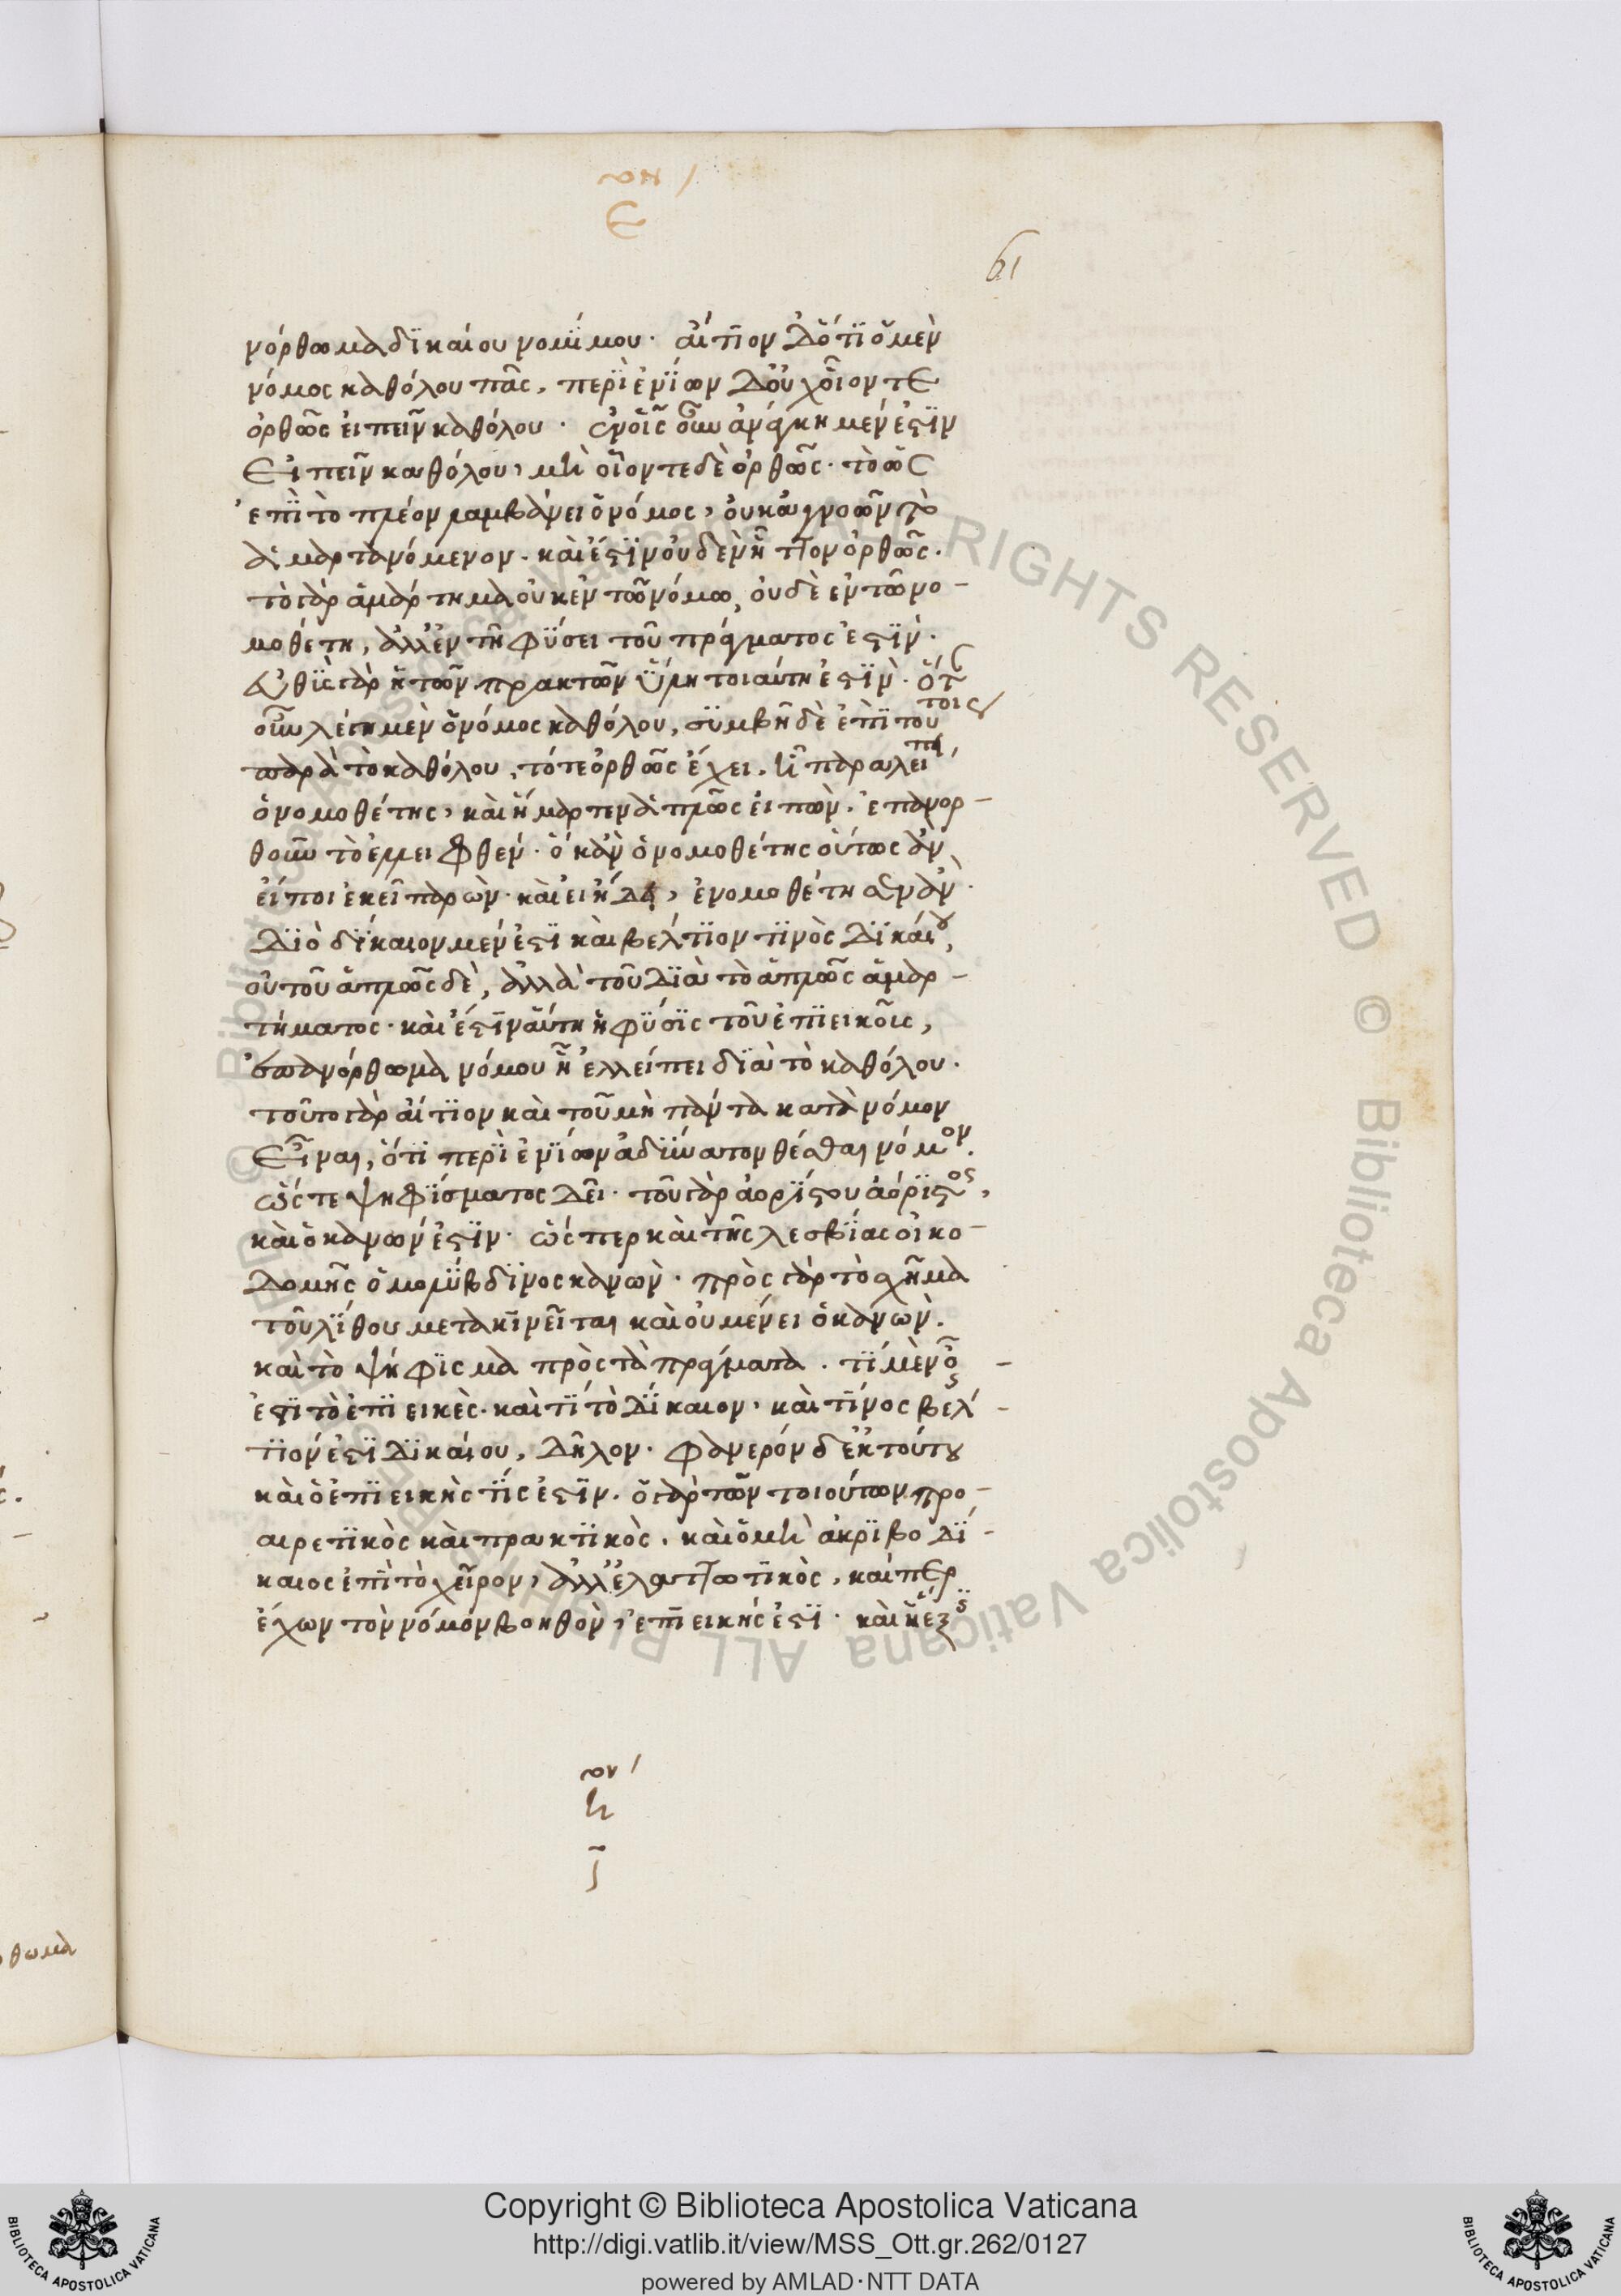 61
νόρθωμα δϊκαίου νομΐμου· αἴτϊον δ' ὅτϊ ὁ μὲν
νόμος καθόλου πᾶς, περὶ ἐνΐων δ' οὐχ οἷον τε
ὀρθῶς εἰπεῖν καθόλου· ἐν οἷς οὖν ἀνάγκη μὲν ἐστϊν
εἰπεῖν καθόλου, μὴ οἷον τε δὲ ὀρθῶς· τὸ ὡς
ἐπὶ τὸ πλέον λαμβάνει ὁ νόμος, οὐκ ἀγνοῶν τὸ
ἁμαρτανόμενον· καὶ ἔστϊν οὐδὲν ἧττον ὀρθῶς·
τὸ γὰρ ἁμάρτημα οὐκ ἐν τῶ νόμω, οὐδὲ ἐν τῶ νο-
μοθέτη, ἀλλ' ἐν τῆ φύσει τοῦ πράγματος ἐστϊν·
εὐθὺς γὰρ ἡ τῶν πρακτῶν ὕλη τοιαύτη ἐστϊν· ὅτ
οὖν λέγη μὲν ὁ νόμος καθόλου, συμβῆ δὲ ἐπὶ τούτοις
παρὰ τὸ καθόλου, τότε ὀρθῶς ἔχει, ἧ παραλείπει
ὁ νομοθέτης, καὶ ἥμαρτεν ἁπλῶς εἰπὼν, ἐπανορ-
θοῦν τὸ ἐλλειφθέν· ὃ κἂν ὁ νομοθέτης οὕτως ἂν
εἴποι ἐκεῖ παρὼν· καὶ εἰ ἤδει, ἐνομοθέτησεν ἂν·
διὸ δΐκαιον μέν ἐστϊ καὶ βέλτϊον τϊνὸς δϊκαίου,
οὐ τοῦ ἁπλῶς δὲ, ἀλλὰ τοῦ διὰ τὸ ἁπλῶς ἁμαρ-
τήματος· καὶ ἔστϊν αὕτη ἡ φύσϊς τοῦ ἐπϊεικοῦς,
ἐπανόρθωμα νόμου ἧ ἐλλείπει διὰ τὸ καθόλου·
τοῦτο γὰρ αἴτϊον καὶ τοῦ μὴ πάντα κατὰ νόμον
εἶναι, ὅτϊ περὶ ἐνΐων ἀδύνατον θέσθαι νόμον.
ὥστε ψηφΐσματος δεῖ· τοῦ γὰρ ἀορΐστου ἀόρϊστος,
καὶ ὁ κανών ἐστϊν· ὥσπερ καὶ τῆς λεσβΐας οἰκο-
δομῆς ὁ μολύβδϊνος κανὼν· πρὸς γὰρ τὸ σχῆμα
τοῦ λΐθου μετακϊνεῖται καὶ οὐ μένει ὁ κανὼν.
καὶ τὸ ψήφϊσμα πρὸς τὰ πράγματα. τΐ μὲν οὖν -
ἐστϊ τὸ ἐπϊεικὲς· καὶ τΐ τὸ δΐκαιον, καὶ τΐνος βελ-
τϊόν ἐστϊ δϊκαίου, δῆλον· φανερόν δ' ἐκ τούτου
καὶ ὁ ἐπϊεικὴς τΐς ἐστϊν· ὁ γὰρ τῶν τοιούτων προ-
αιρετϊκὸς καὶ πρακτϊκὸς, καὶ ὁ μὴ ἀκρϊβοδΐ-
καιος ἐπὶ τὸ χεῖρον, ἀλλ' ἐλαττωτϊκὸς, καίπερ
ἔχων τὸν νόμον βοηθὸν, ἐπϊεικής ἐστϊ· καὶ ἡ ἕξις
Copyright © Biblioteca Apostolica Vaticana
http://digi.vatlib.it/view/MSS_Ott.gr.262/0127
powered by AMLAD·NTT DATA
BIBLIOTECA APOSTOLICA VATICANA
BIBLIOTECA APOSTOLICA VATICANA
© Biblioteca Apostolica Vaticana ALL RIGHTS RESERVED